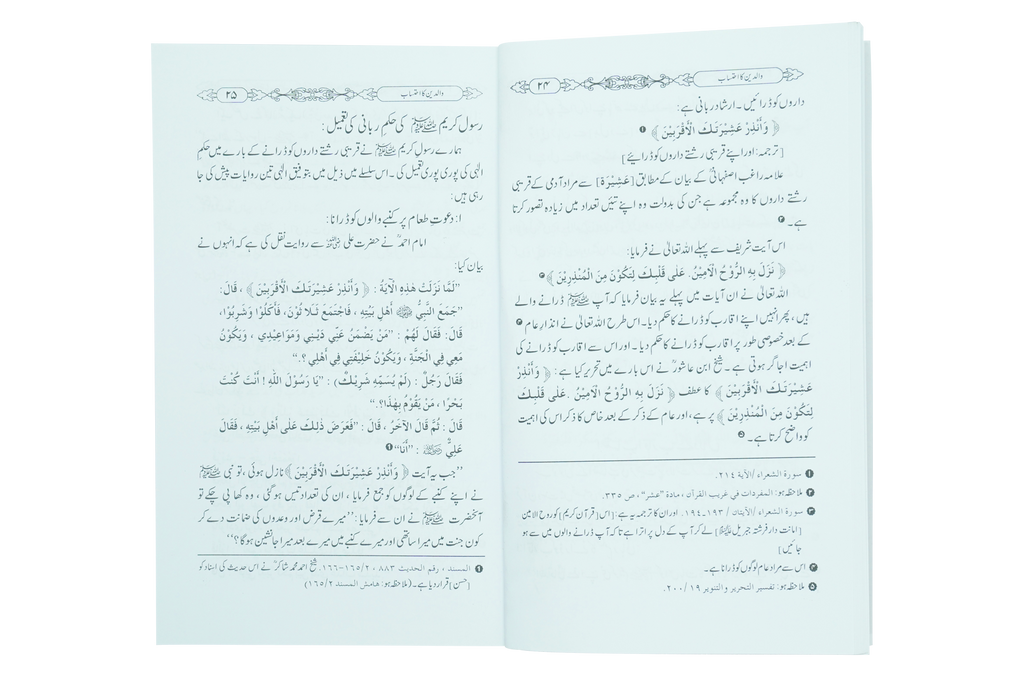 والدین کا احتساب
۲۴
داروں کو ڈرائیں۔ ارشاد ربانی ہے:
﴿ وَأَنْذِرْ عَشِيْرَتَكَ الْأَقْرَبِيْنَ ﴾ ❶
[ترجمہ: اور اپنے قریبی رشتے داروں کو ڈرائیے]
علامہ راغب اصفہانیؒ کے بیان کے مطابق [عَشِيْرَة] سے مراد آدمی کے قریبی
رشتے داروں کا وہ مجموعہ ہے جن کی بدولت وہ اپنے تئیں تعداد میں زیادہ تصور کرتا
ہے۔ ❷
اس آیت شریف سے پہلے اللہ تعالیٰ نے فرمایا:
﴿ نَزَلَ بِهِ الرُّوْحُ الْأَمِيْنُ. عَلَى قَلْبِكَ لِتَكُوْنَ مِنَ الْمُنْذِرِيْنَ ﴾ ❸
اللہ تعالیٰ نے ان آیات میں پہلے یہ بیان فرمایا کہ آپ ﷺ ڈرانے والے
ہیں، پھر انہیں اپنے اقارب کو ڈرانے کا حکم دیا۔ اس طرح اللہ تعالیٰ نے انذارِ عام ❹
کے بعد خصوصی طور پر اقارب کو ڈرانے کا حکم دیا۔ اور اس سے اقارب کو ڈرانے کی
اہمیت اجاگر ہوتی ہے۔ شیخ ابن عاشورؒ نے اس بارے میں تحریر کیا ہے: ﴿ وَأَنْذِرْ
عَشِيْرَتَكَ الْأَقْرَبِيْنَ ﴾ کا عطف ﴿ نَزَلَ بِهِ الرُّوْحُ الْأَمِيْنُ. عَلَى قَلْبِكَ
لِتَكُوْنَ مِنَ الْمُنْذِرِيْنَ ﴾ پر ہے، اور عام کے ذکر کے بعد خاص کا ذکر اس کی اہمیت
کو واضح کرتا ہے۔ ❺
❶ سورة الشعراء /الآية ۲۱۴.
❷ ملاحظہ ہو: المفردات في غريب القرآن، مادة "عشر"، ص ۳۳۵.
❸ سورة الشعراء/الآيتان / ۱۹۳۔۱۹۴. اور ان کا ترجمہ یہ ہے: [اس [قرآن کریم] کو روح الامین
[امانت دار فرشتہ جبریل] لے کر آپ کے دل پر اترا ہے تاکہ آپ ڈرانے والوں میں سے ہو
جائیں]
❹ اس سے مراد عام لوگوں کو ڈرانا ہے۔
❺ ملاحظہ ہو: تفسير التحرير والتنوير ۱۹/ ۲۰۰.
والدین کا احتساب
۲۵
رسول کریم ﷺ کی حکمِ ربانی کی تعمیل:
ہمارے رسول کریم ﷺ نے قریبی رشتے داروں کو ڈرانے کے بارے میں حکمِ
الٰہی کی پوری پوری تعمیل کی۔ اس سلسلے میں ذیل میں بتوفیق الٰہی تین روایات پیش کی جا
رہی ہیں:
ا: دعوتِ طعام پر کنبے والوں کو ڈرانا:
امام احمدؒ نے حضرت علی رضی اللہ عنہ سے روایت نقل کی ہے کہ انہوں نے
بیان کیا:
"لَمَّا نَزَلَتْ هٰذِهِ الْآيَةُ: ﴿ وَأَنْذِرْ عَشِيْرَتَكَ الْأَقْرَبِيْنَ ﴾، قَالَ:
"جَمَعَ النَّبِيُّ ﷺ أَهْلَ بَيْتِهِ، فَاجْتَمَعَ ثَلَاثُوْنَ، فَأَكَلُوْا وَشَرِبُوْا،
قَالَ: فَقَالَ لَهُمْ: "مَنْ يَضْمَنُ عَنِّي دَيْنِي وَمَوَاعِيْدِي، وَيَكُوْنُ
مَعِي فِي الْجَنَّةِ، وَيَكُوْنُ خَلِيْفَتِي فِي أَهْلِي؟."
فَقَالَ رَجُلٌ: (لَمْ يُسَمِّهِ شَرِيْكٌ): "يَا رَسُوْلَ اللهِ! أَنْتَ كُنْتَ
بَحْرًا، مَنْ يَقُوْمُ بِهٰذَا؟."
قَالَ: ثُمَّ قَالَ الْآخَرُ، قَالَ: "فَعَرَضَ ذٰلِكَ عَلَى أَهْلِ بَيْتِهِ، فَقَالَ
عَلِيٌّ رضی اللہ عنہ: "أَنَا" ❶
"جب یہ آیت ﴿ وَأَنْذِرْ عَشِيْرَتَكَ الْأَقْرَبِيْنَ ﴾ نازل ہوئی، تو نبی ﷺ
نے اپنے کنبے کے لوگوں کو جمع فرمایا، ان کی تعداد تیس ہو گئی، وہ کھا پی چکے تو
آنحضرت ﷺ نے ان سے فرمایا: "میرے قرض اور وعدوں کی ضمانت دے کر
کون جنت میں میرا ساتھی اور میرے کنبے میں میرے بعد میرا جانشین ہو گا؟"
❶ المسند، رقم الحديث ۸۸۳، ۲/ ۱۶۵۔۱۶۶. شیخ احمد محمد شاکرؒ نے اس حدیث کی اسناد کو
[حسن] قرار دیا ہے۔ (ملاحظہ ہو: هامش المسند ۲/ ۱۶۵)